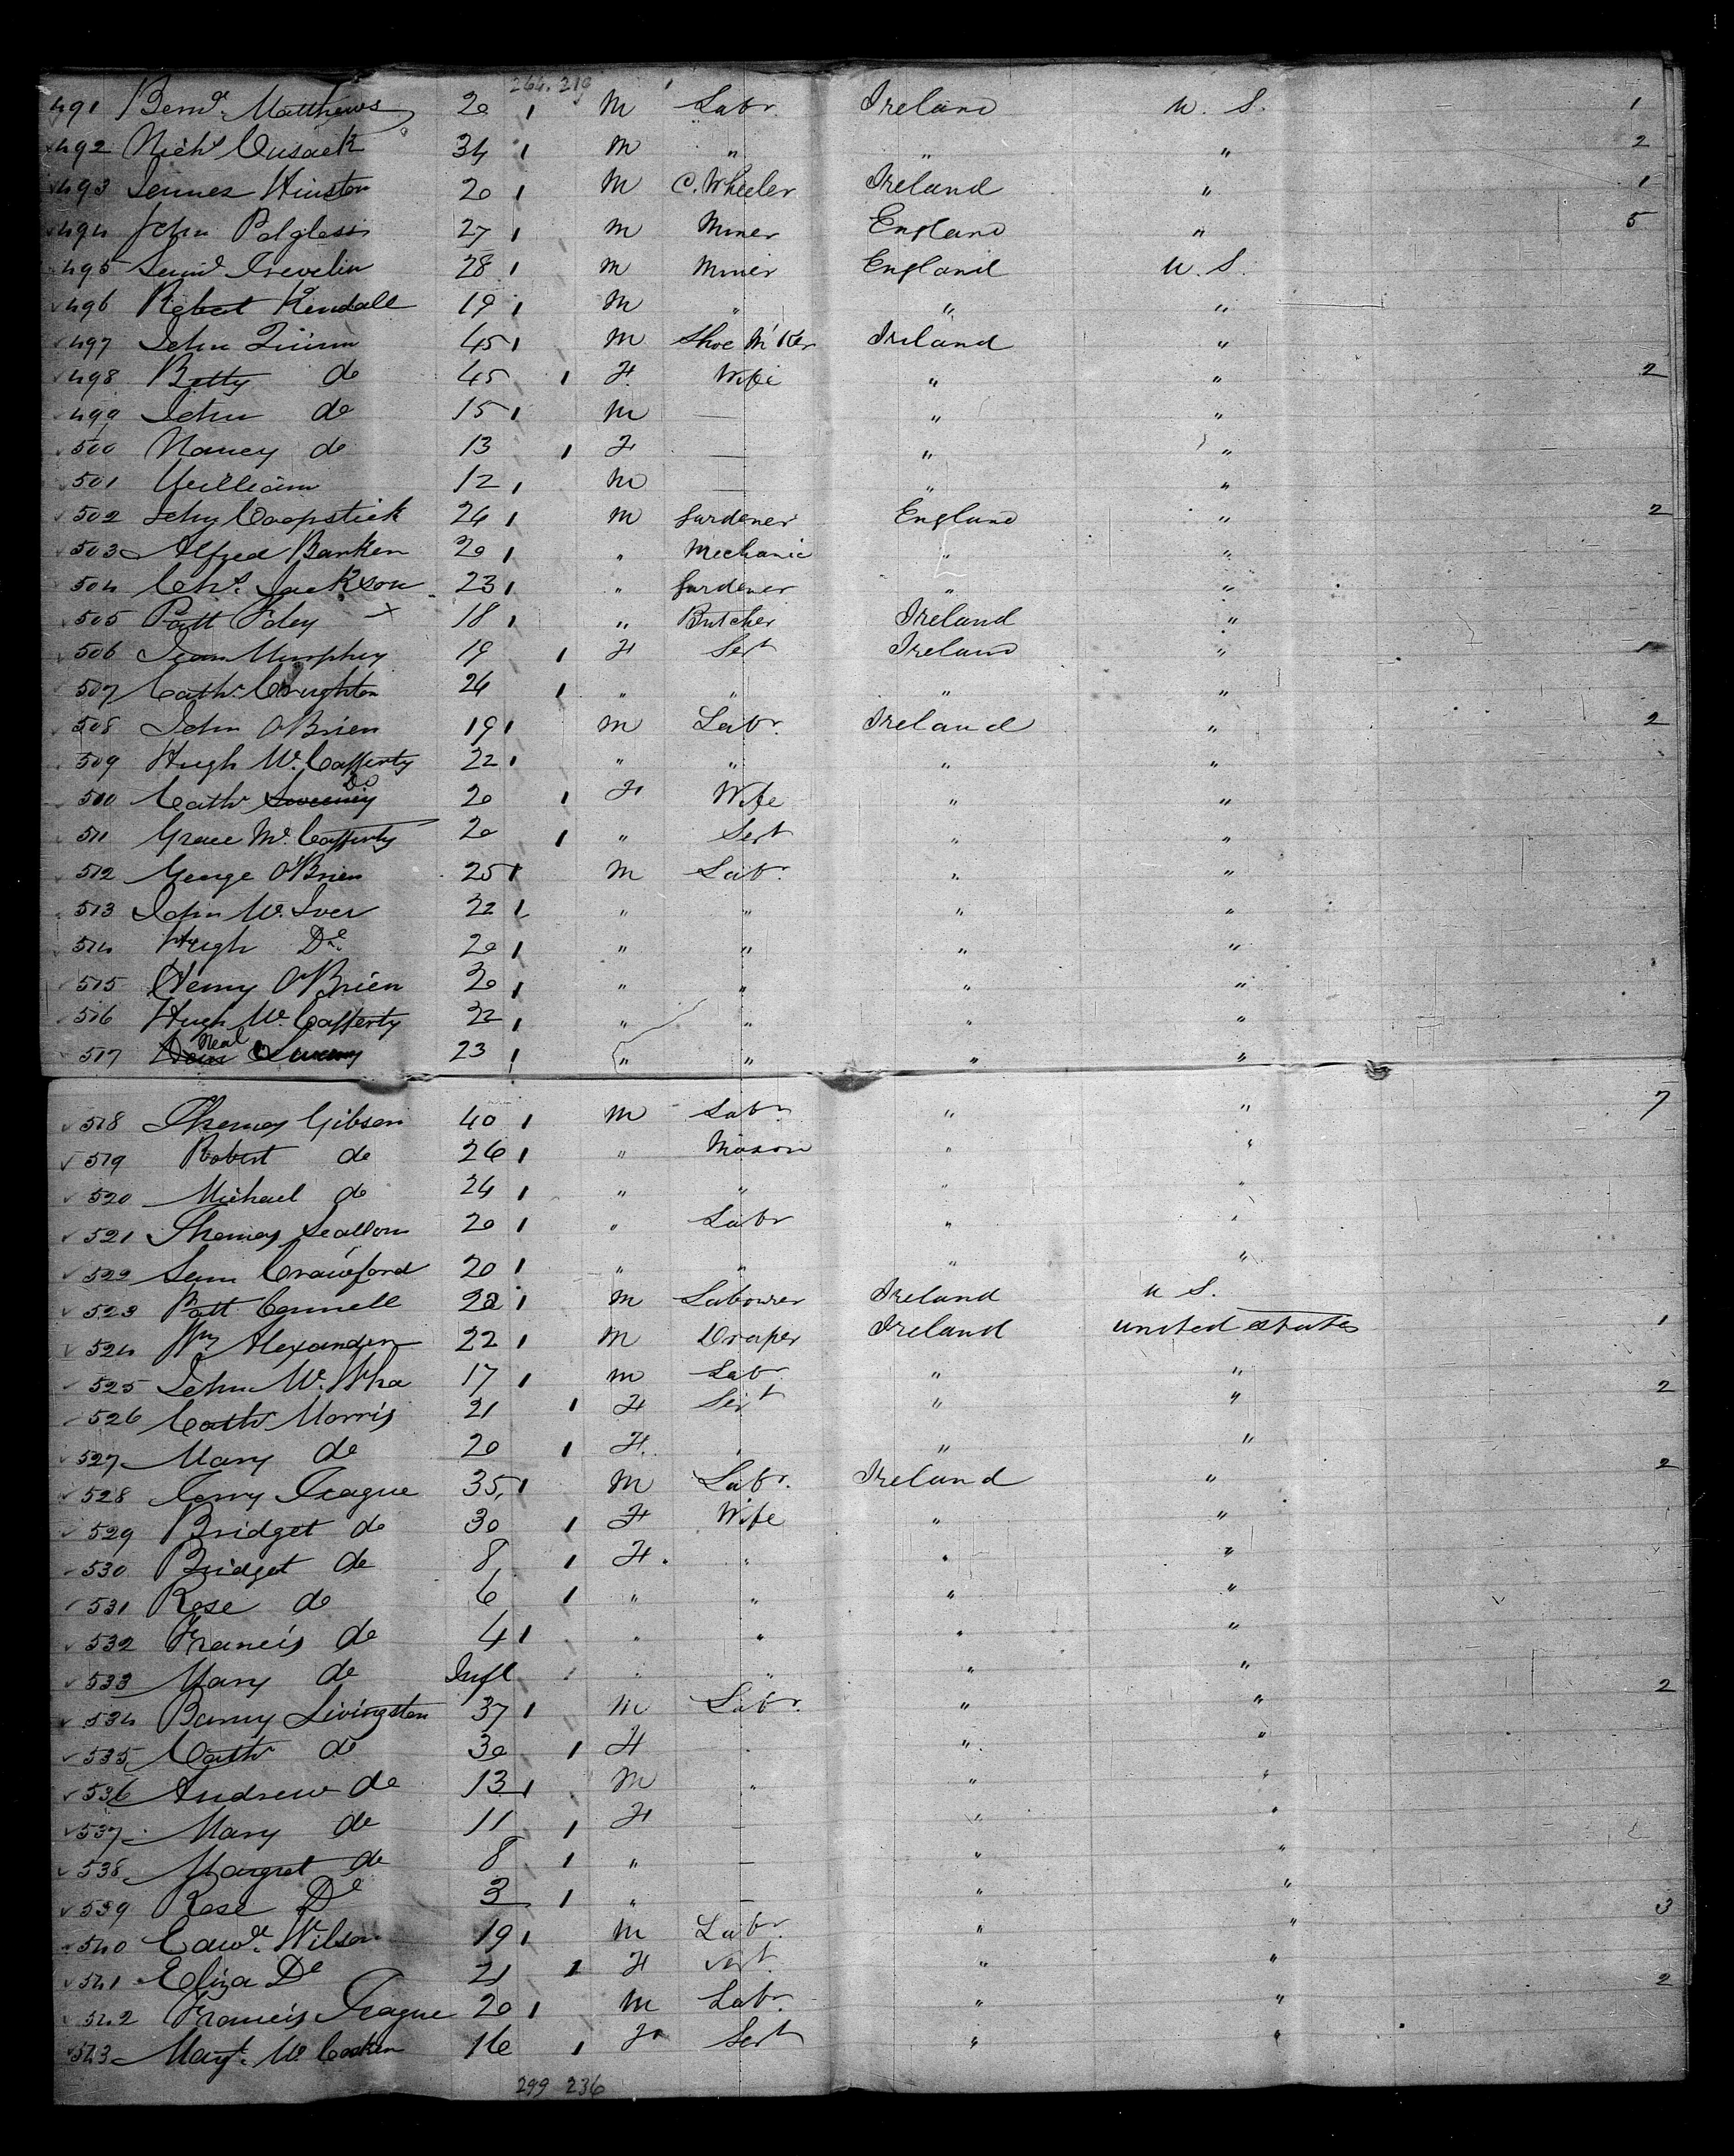 264. 219
491 Bernd. Matthews 20 1 M Labr. Ireland U. S. 1
492 Richd Cusack 34 1 M " " " 2
493 James Hinston 20 1 M C. Wheeler Ireland " 1
494 John Polgless 27 1 M Miner England " 5
495 Saml Trevelin 28 1 M Miner England U. S.
496 Robert Kendall 19 1 M " " "
497 John Quinn 45 1 M Shoe M'Ker Ireland "
498 Betty do 45 1 F. Wife " " 2
499 John do 15 1 M — " "
500 Nancy do 13 1 F — " "
501 William 12 1 M — " "
502 Coopstick 26 1 M Gardener England " 2
503 Alfred Barken 20 1 " Mechanic " "
504 Chs. Jackson 23 1 " Gardener " "
505 Patt Foley x 18 1 " Butcher Ireland "
506 Murphy 19 1 F Sert Ireland "
507 Cathr 26 1 " " " "
508 John O'Brien 19 1 M Labr. Ireland " 2
509 Hugh Mc. Cafferty 22 1 " " " "
510 Cathr Sweeney Do 20 1 F Wife " "
511 Grace Mc. Cafferty 20 1 " Sert " "
512 George O'Brien 25 1 M Labr. " "
513 John Mc. Iver 22 1 " " " "
514 Hugh Do 20 1 " " " "
515 Henry O'Brien 20 1 " " " "
516 Hugh Mc. Cafferty 22 1 " " " "
517 Neal 23 1 " " " "
518 Thomas Gibson 40 1 M Labr " " 7
519 Robert do 26 1 " Mason " "
520 Michael do 24 1 " " " "
521 Thomas Scallon 20 1 " Labr " "
522 Sam Crawford 20 1 " " " "
523 Patt Connell 22 1 M Labourer Ireland U S.
524 Wm Alexander 22 1 M Draper Ireland united states 1
525 John Mc. Wha 17 1 M Labr " " 2
526 Cathr Morris 21 1 F Sert " "
527 Mary do 20 1 F. " " "
528 Teague 35 1 M Labr. Ireland " 2
529 Bridget do 30 1 F Wife " "
530 Bridget do 8 1 F. " " "
531 Rose do 6 1 " " " "
532 Francis do 4 1 " " " "
533 Mary do Inft 1 " " " "
534 Barny Livingston 37 1 M Labr. " " 2
535 Cathr do 30 1 F " "
536 Andrew do 13 1 M " " "
537 Mary do 11 1 F — " "
538 Margret do 8 1 " — " "
539 Rose Do 3 1 " — " "
540 Edwd. Wilson 19 1 M Labr. " " 3
541 Eliza Do 21 1 F Sert. " "
542 Francis Teague 20 1 M Labr. " " 2
543 Margt. Mc 16 1 F Sert " "
299 236